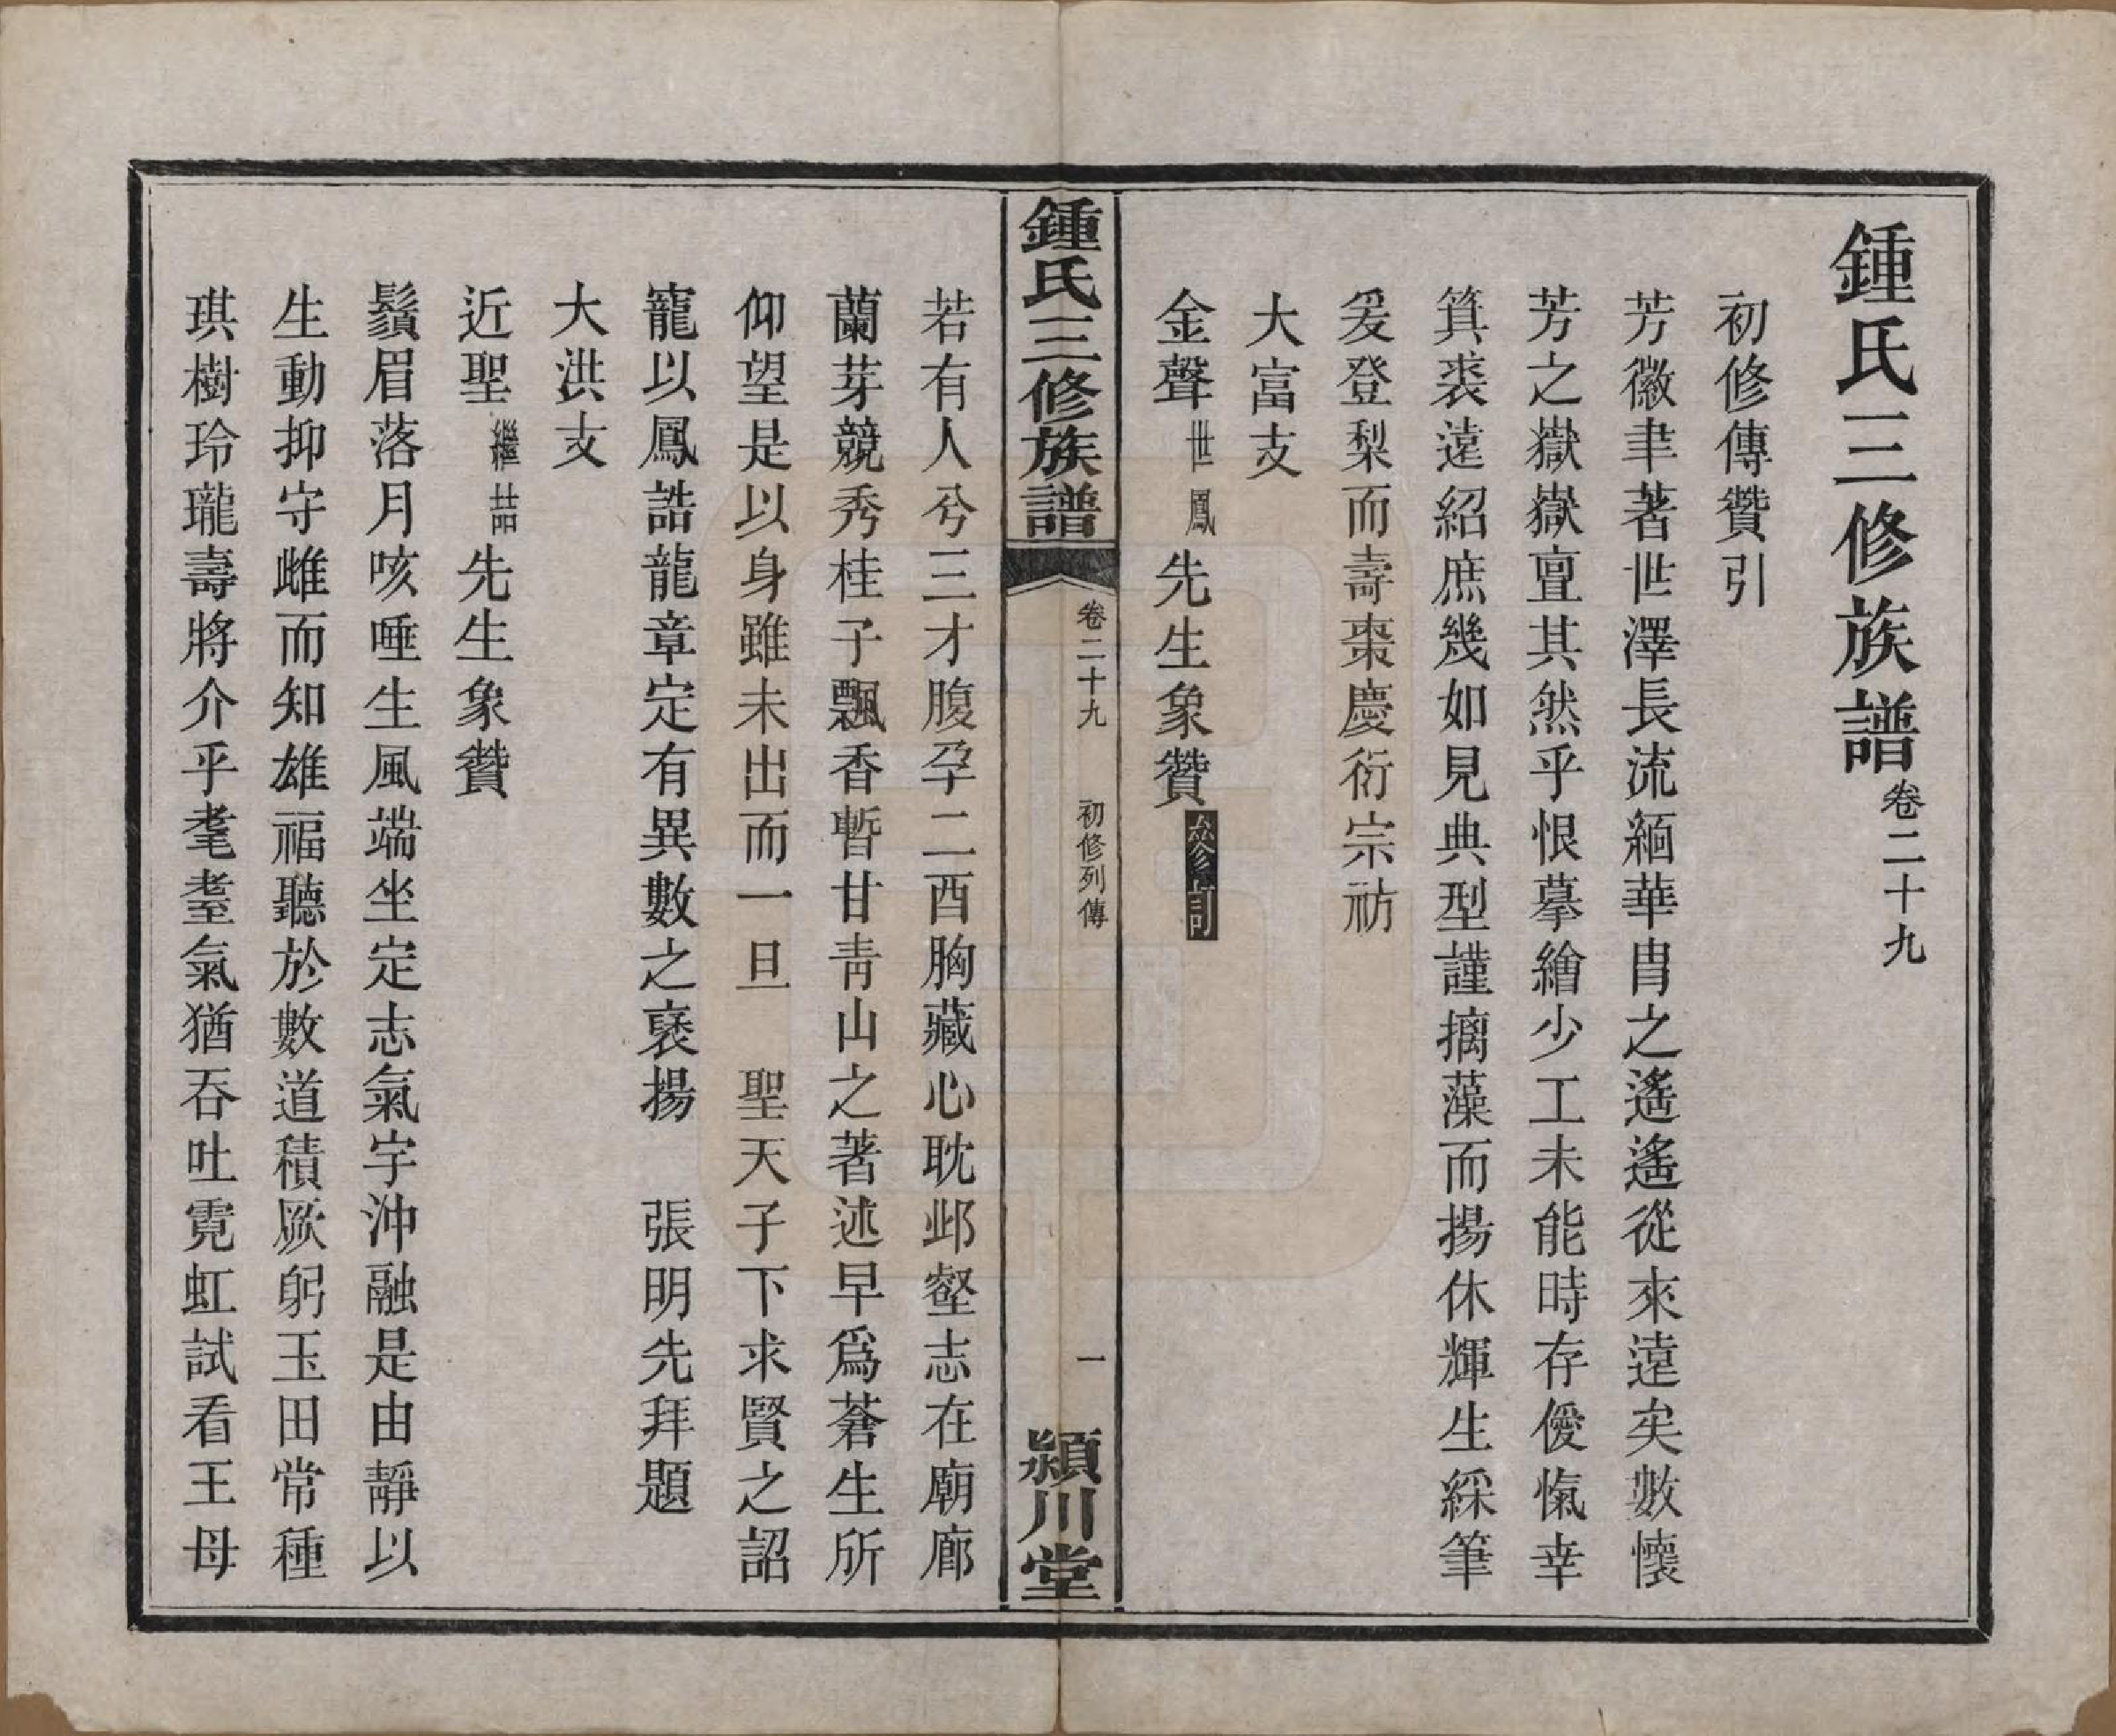 鍾氏三修族譜卷二十九
初修傳贊引
芳徽聿著世澤長流緬華胄之遙遙從來遠矣數懷
芳之嶽嶽亶其然乎恨摹繪少工未能時存僾愾幸
箕裘遠紹庶幾如見典型謹摛藻而揚休輝生綵筆
爰登梨而壽棗慶衍宗祊
大富支
金聲世鳳先生象贊叅修訂
鍾氏三修族譜
卷二十九
初修列傳
一
潁川堂
若有人兮三才腹孕二酉胸藏心耽邺壑志在廟廊
蘭芽競秀桂子飄香暫甘靑山之著述早爲蒼生所
仰望是以身雖未出而一旦 聖天子下求賢之詔
寵以鳳誥龍章定有異數之褒揚 張明先拜題
大洪支
近聖繼喆先生象贊
鬚眉落月咳唾生風端坐定志氣宇沖融是由靜以
生動抑守雌而知雄福聽於數道積厥躬玉田常種
琪樹玲瓏壽將介乎耄耋氣猶吞吐霓虹試看王母